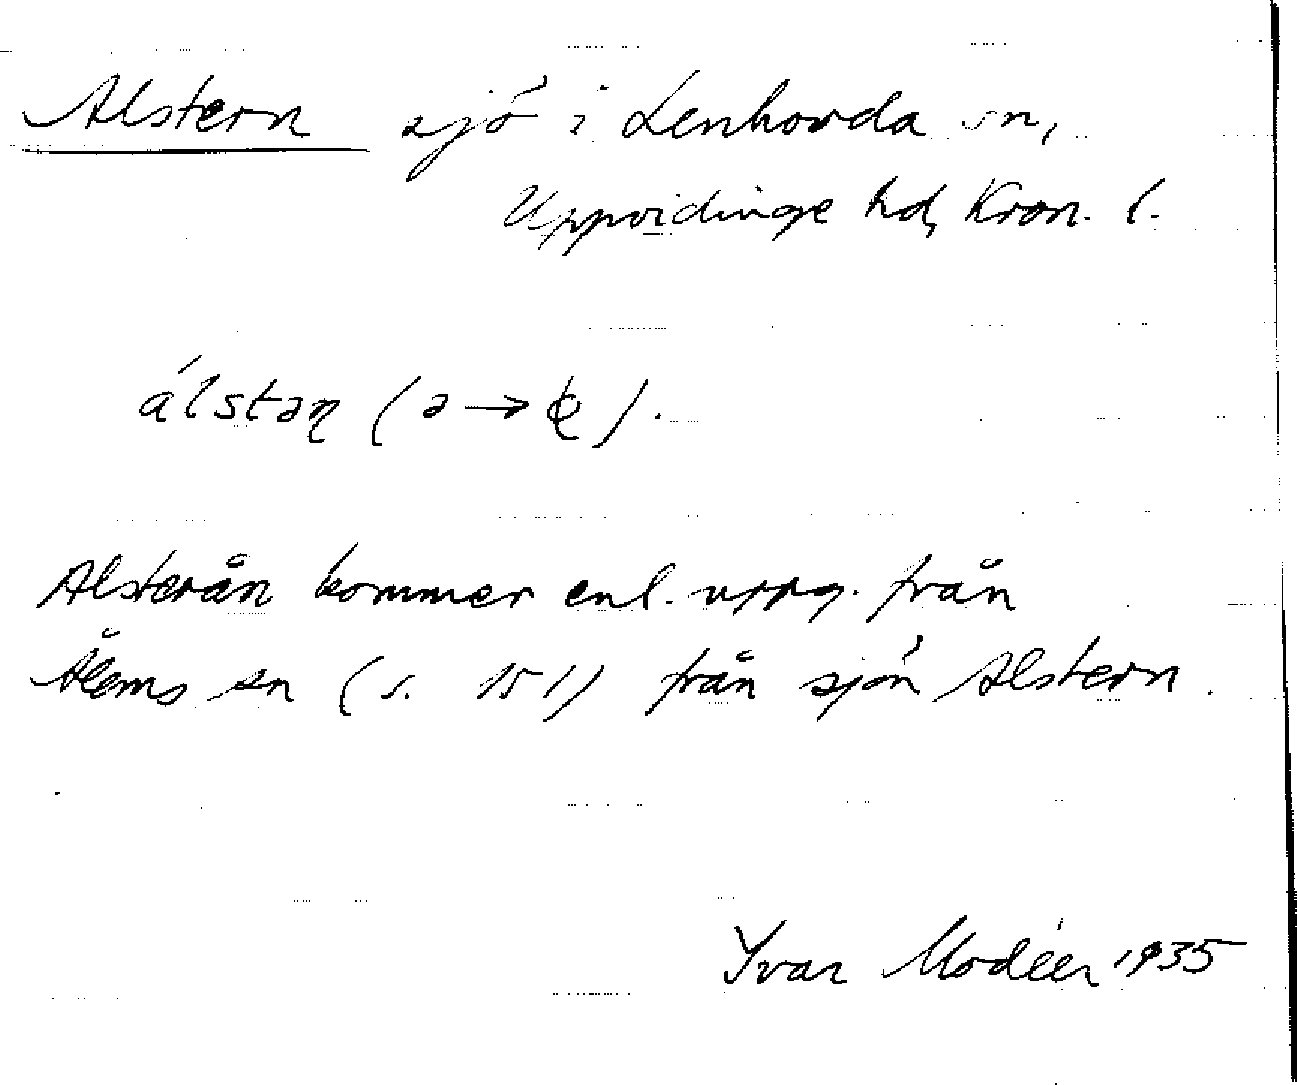 Alstern sjö i Lenhovda sn,
Uppvidinge hd, Kron. l.
álstaɳ (a → ).
Alsterån kommer enl. uppg. från
Ålems sn (s. 151) från sjön Alstern.
Yvar Modéer 1935